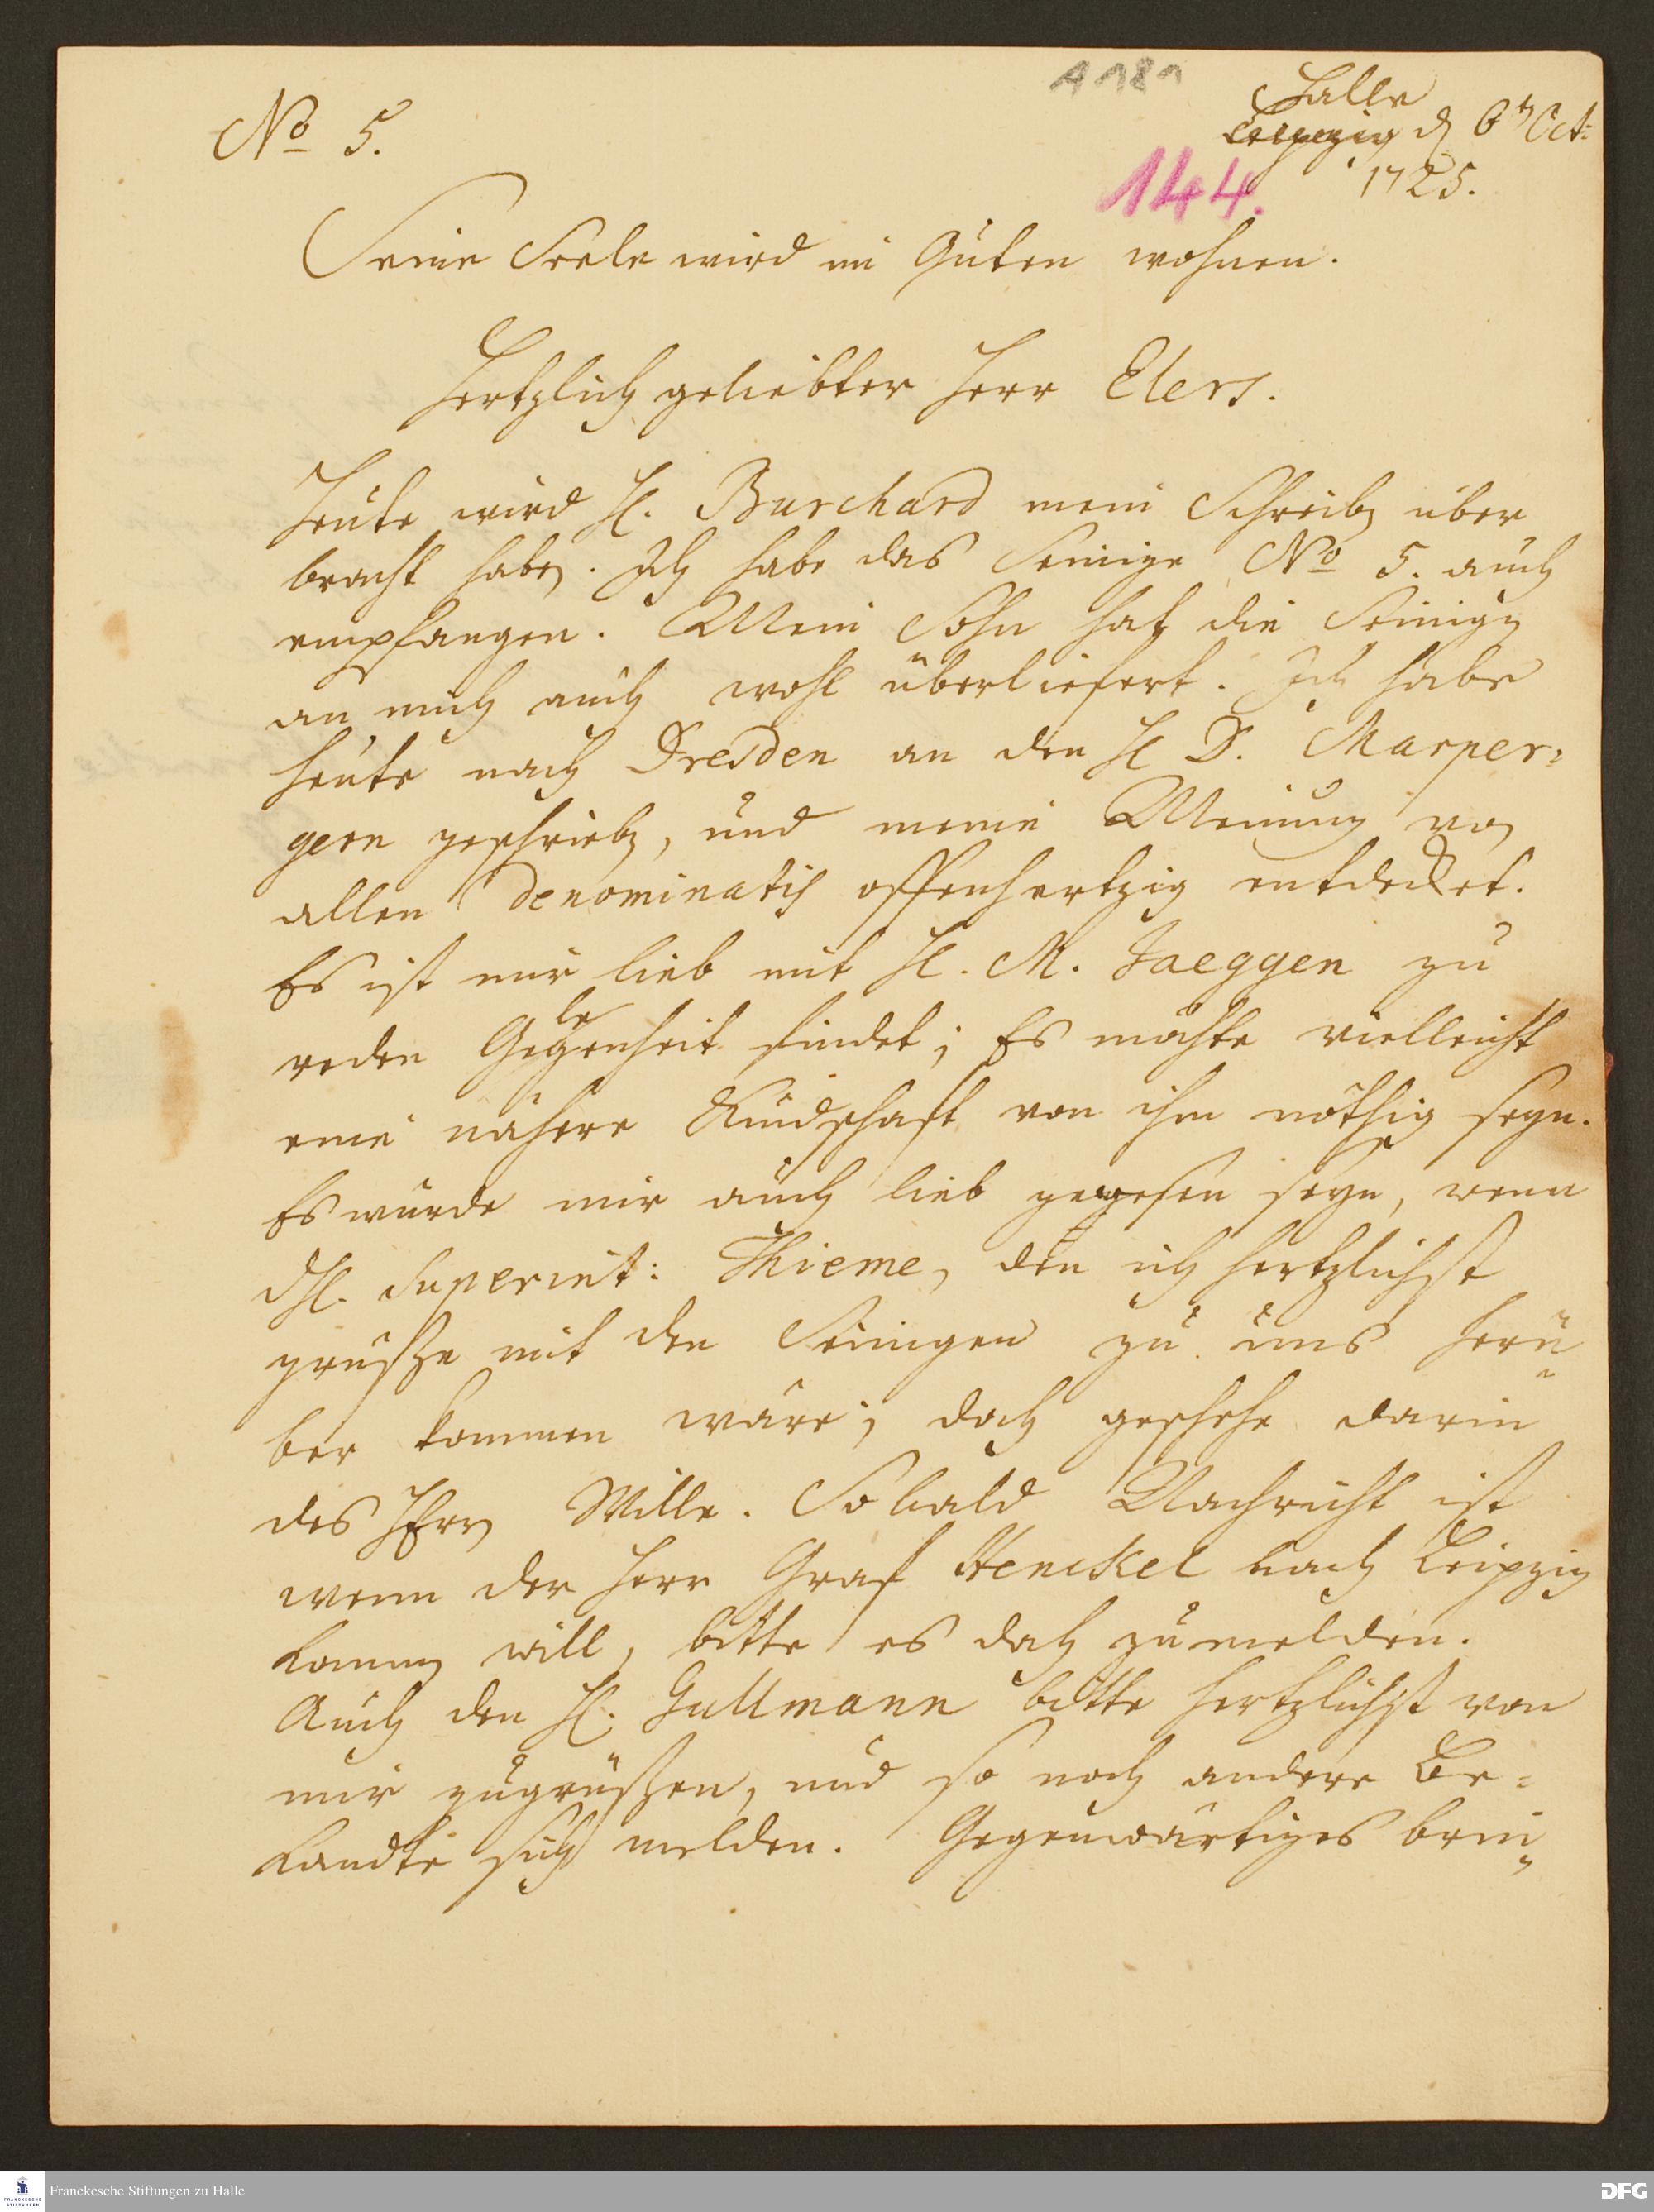 A 181
No 5.
Halle
Leipzig d 6t Oct:
144.
1725.
Seine Seele wird im Guten wohnen.
Hertzlich geliebter Herr Elers.
Heute wird H. Burchard mein Schreiben über
bracht haben. Ich habe das Seinige No 5. auch
empfangen. Mein Sohn hat die Seinigen
an mich auch wohl überliefert. Ich habe
heute nach Dresden an den H D. Marper-
gern geschrieben, und meine Meinung von
allen denominatis offenhertzig entdecket.
Es ist mir lieb mit H. M. Jaeggen zu
reden Gelegenheit findet; Es möchte vielleicht
eine nähere Kundschaft von ihm nöthig seyn.
Es würde mir auch lieb gewesen seyn, wenn
d H. Superint: Thieme, den ich hertzlichst
grüsse mit den Seinigen zu uns herü-
ber kommen wäre; doch geschehe darin
des HErrn Wille. So bald Nachricht ist
wenn der Herr Graf Henckel nach Leipzig
kommen will, bitte es doch zu melden.
Auch den H. Gullmann bitte hertzlichst von
mir zugrüssen, und so noch andere Be-
kandte sich melden. Gegenwärtiges brin-
Franckesche Stiftungen zu Halle
FRANCKESCHE
STIFTUNGEN
DFG